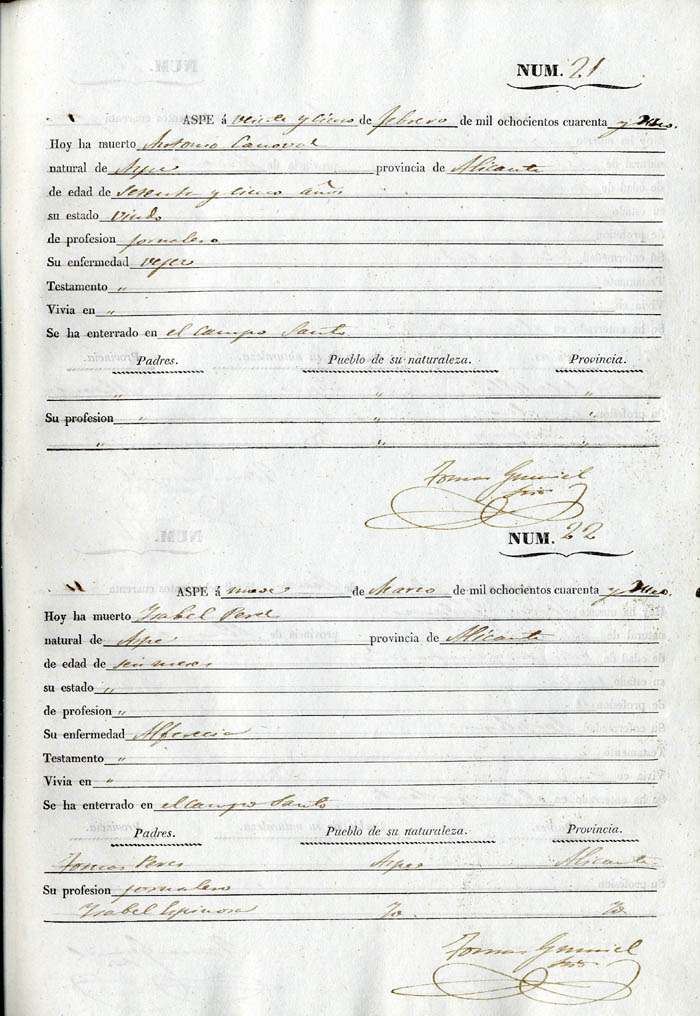 NUM. 21
ASPE á veinte y cinco de febrero de mil ochocientos cuarenta y
Hoy ha muerto Antonio
natural de Aspe provincia de Alicante
de edad de y cinco años
su estado viudo
de profesion jornalero
Su enfermedad vejez
Testamento "
Vivia en "
Se ha enterrado en el campo Santo
Padres. Pueblo de su naturaleza. Provincia.
" " "
Su profesion " " "
" " "
Tomas
NUM. 22
ASPE á de Marzo de mil ochocientos cuarenta y
Hoy ha muerto Isabel Peres
natural de Aspe provincia de Alicante
de edad de seis meses
su estado "
de profesion "
Su enfermedad Alferecia
Testamento "
Vivia en "
Se ha enterrado en el campo Santo
Padres. Pueblo de su naturaleza. Provincia.
Tomas Peres Aspe Alicante
Su profesion jornalero
Isabel Espinosa Id. Id
Tomas